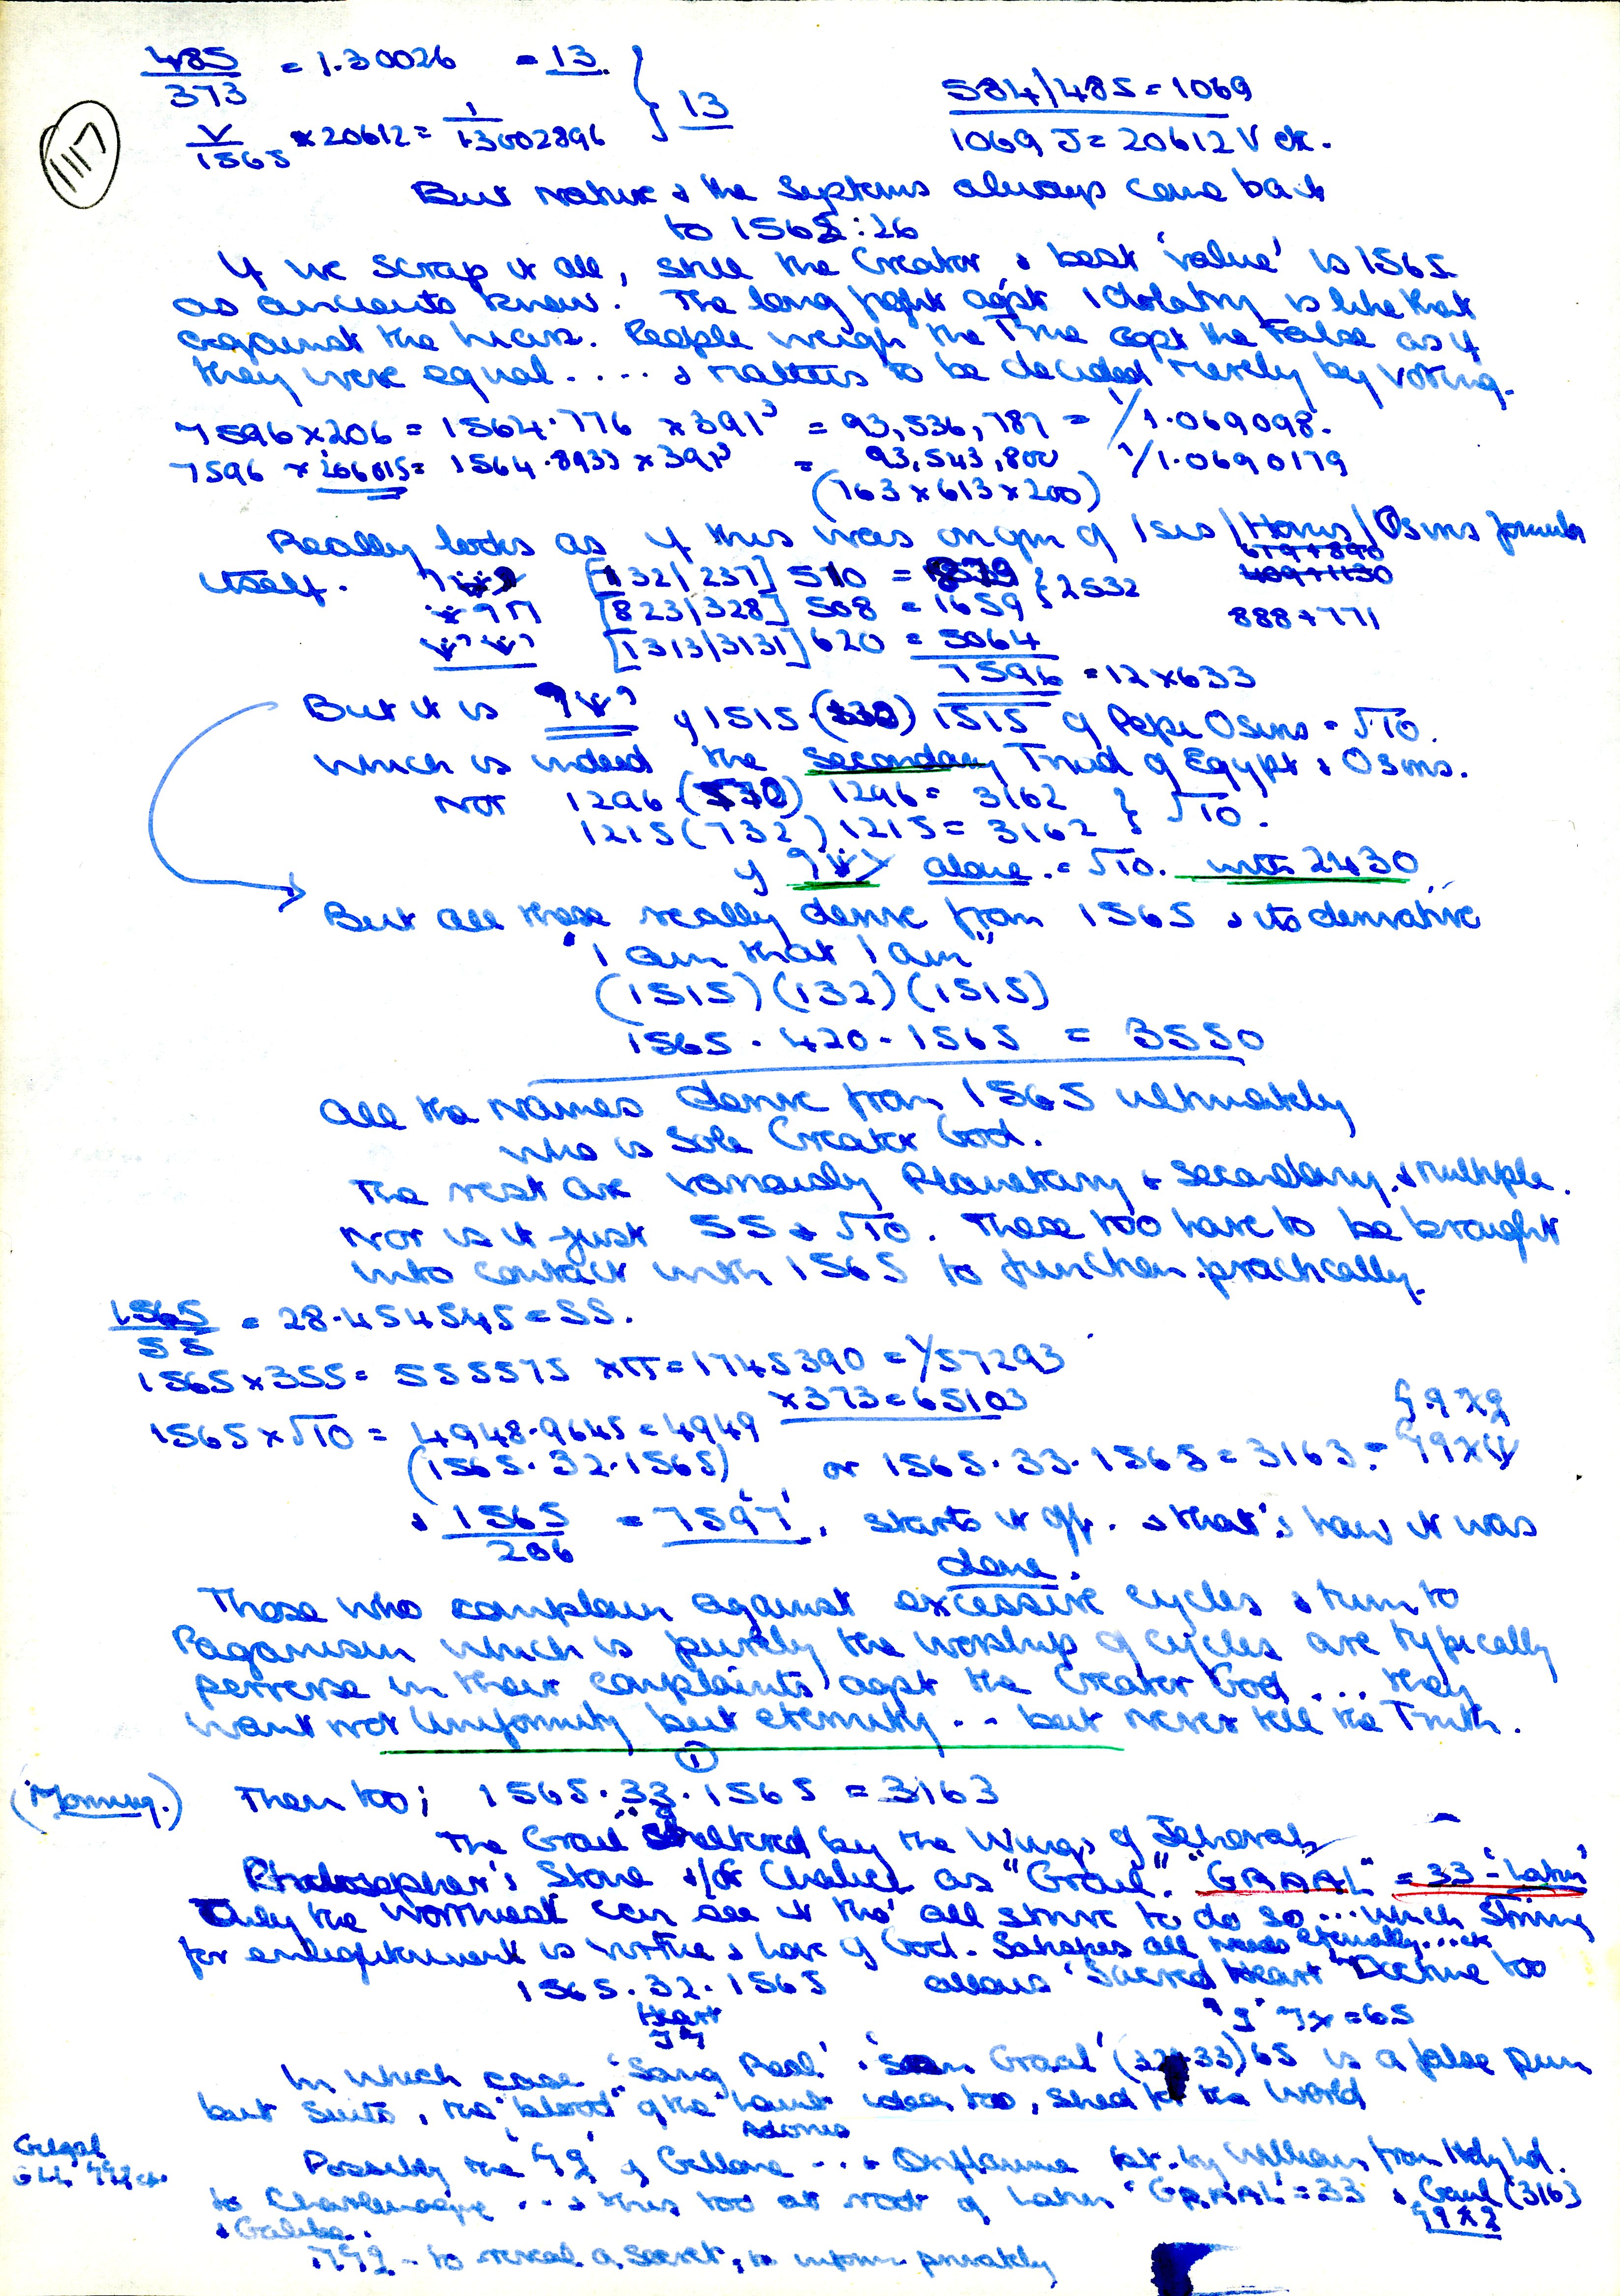 1117
485/373 = 1.30026 = 13. } 13
V/1565 × 20612 = 1/13002896
584/485 = 1069
1069 J = 20612 V etc.
But Nature & the Systems always come back
to 1565:26
If we scrap it all, still the Creator & best 'value' is 1565
as ancients knew. The long fight agst Idolatry is like that
against the . People weigh the True agst the False as if
they were equal.... & matters to be decided merely by voting.
7596 × 206 = 1564.776 × 391³ = 93,536,787 = 1/1.069098.
7596 × 206015 = 1564.8933 × 391³ = 93,543,800 1/1.0690179
(763 × 613 × 200)
Really looks as if this was origin of Isis/Horus/Osiris formula
itself. [132/237] 510 = 879 } 2532
[823/328] 508 = 1659
888+771
[1313/3131] 620 = 5064
7596 = 12 × 633
But it is if 1515 (132) 1515 of Pepi Osiris = √10.
which is indeed the Secondary Triad of Egypt & Osiris.
Nor 1296 (570) 1296 = 3162 } √10.
1215 (732) 1215 = 3162
if alone = √10. with 2430
But all these really derive from 1565 & its derivative
"I am that I am"
(1515) (132) (1515)
1565 . 420 . 1565 = 3550
All the Names derive from 1565 ultimately
who is Sole Creator God.
The rest are variously Planetary & Secondary & multiple.
Nor is it just 55 & √10. These too have to be brought
into contact with 1565 to function practically.
1565/55 = 28.454545 = 55.
1565 × 355 = 555575 × π = 1745390 = 1/57293
× 373 = 65103
1565 × √10 = 4948.9645 = 4949
(1565.32.1565) or 1565.33.1565 = 3163 =
& 1565/206 = '7597', starts it off. & that's how it was
done.
Those who complain against excessive cycles & turn to
Paganism which is purely the worship of cycles are typically
perverse in their complaints agst the Creator God ... they
want not Uniformity but eternity .. but never tell the Truth.
①
(Morning.) Then too; 1565.33.1565 = 3163
The Grail sheltered by the Wings of Jehovah
Philosopher's Stone &/or Chalice as "Grail". "GRAAL" = 33 - Latin
Only the worthiest can see it tho' all strive to do so ... which striving
for enlightenment is Virtue & love of God. all needs eternally...etc
1565.32.1565 allows 'Sacred Heart' Doctrine too
Heart
= 65
In which case 'Sang Real' & 'San Graal' (32+33) 65 is a false pun
but suits, the "blood" of the heart idea too, shed for the World
Adonis
Possibly the of Gellone ... & Oriflamme by William from Holy Ld.
to Charlemagne ... & this too at root of Latin "GRAAL" = 33 & Gaul (316)
&
- to reveal a secret, to inform privately